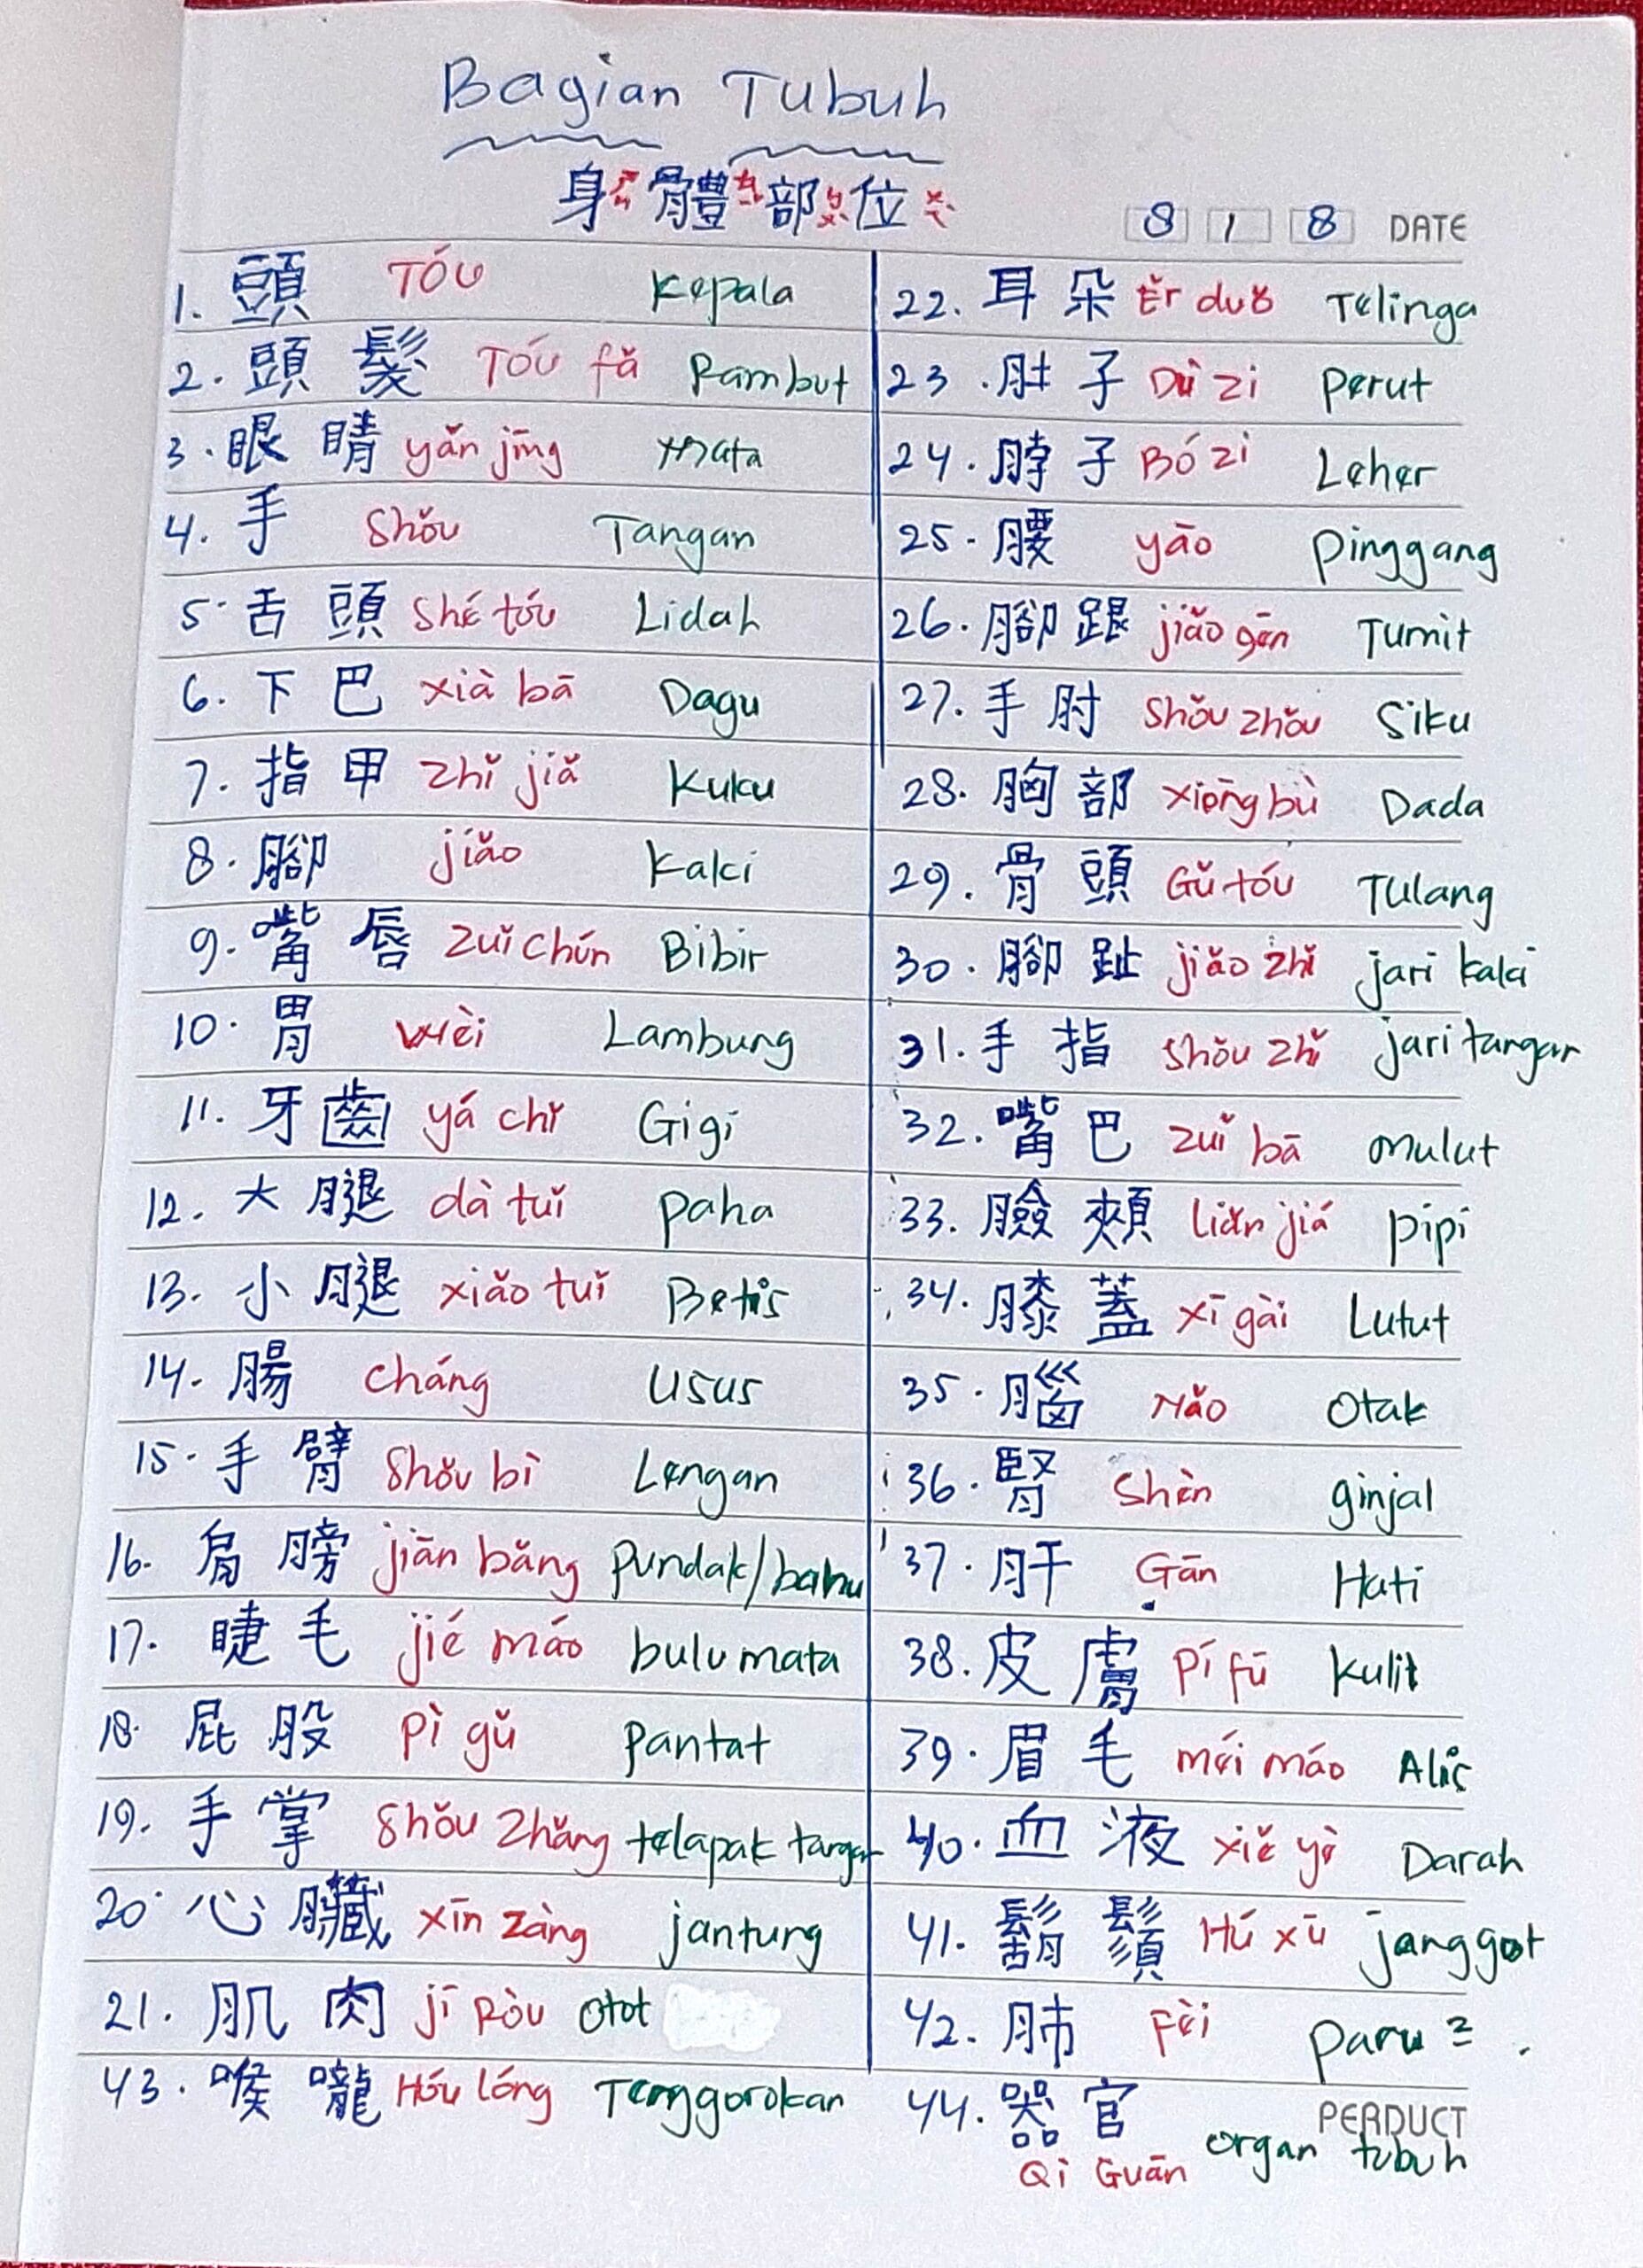 Bagian Tubuh
身體部位
8 1 8 DATE
1. 頭 Tóu Kepala
2. 頭髮 Tóu fǎ Rambut
3. 眼睛 yǎn jīng Mata
4. 手 Shǒu Tangan
5. 舌頭 Shé tóu Lidah
6. 下巴 xià bā Dagu
7. 指甲 zhǐ jiǎ Kuku
8. 腳 jiǎo Kaki
9. 嘴唇 zuǐ chún Bibir
10. 胃 wèi Lambung
11. 牙齒 yá chǐ Gigi
12. 大腿 dà tuǐ paha
13. 小腿 xiǎo tuǐ Betis
14. 腸 cháng Usus
15. 手臂 Shǒu bì Lengan
16. 肩膀 jiān bǎng pundak/bahu
17. 睫毛 jié máo bulu mata
18. 屁股 pì gǔ pantat
19. 手掌 Shǒu Zhǎng telapak tangan
20. 心臟 xīn zàng jantung
21. 肌肉 jī Ròu Otot
22. 耳朵 Ěr duǒ Telinga
23. 肚子 Dù zi perut
24. 脖子 Bó zi Leher
25. 腰 yāo pinggang
26. 腳跟 jiǎo gēn Tumit
27. 手肘 Shǒu zhǒu Siku
28. 胸部 xiōng bù Dada
29. 骨頭 Gǔ tóu Tulang
30. 腳趾 jiǎo zhǐ jari kaki
31. 手指 shǒu zhǐ jari tangan
32. 嘴巴 zuǐ bā mulut
33. 臉頰 liǎn jiá pipi
34. 膝蓋 xī gài Lutut
35. 腦 Nǎo Otak
36. 腎 Shèn ginjal
37. 肝 Gān Hati
38. 皮膚 pí fū kulit
39. 眉毛 méi máo Alis
40. 血液 xiě yè Darah
41. 鬍鬚 Hú xū janggot
42. 肺 Fèi paru2
43. 喉嚨 Hóu lóng Tenggorokan
44. 器官 Qì Guān organ tubuh
PERDUCT